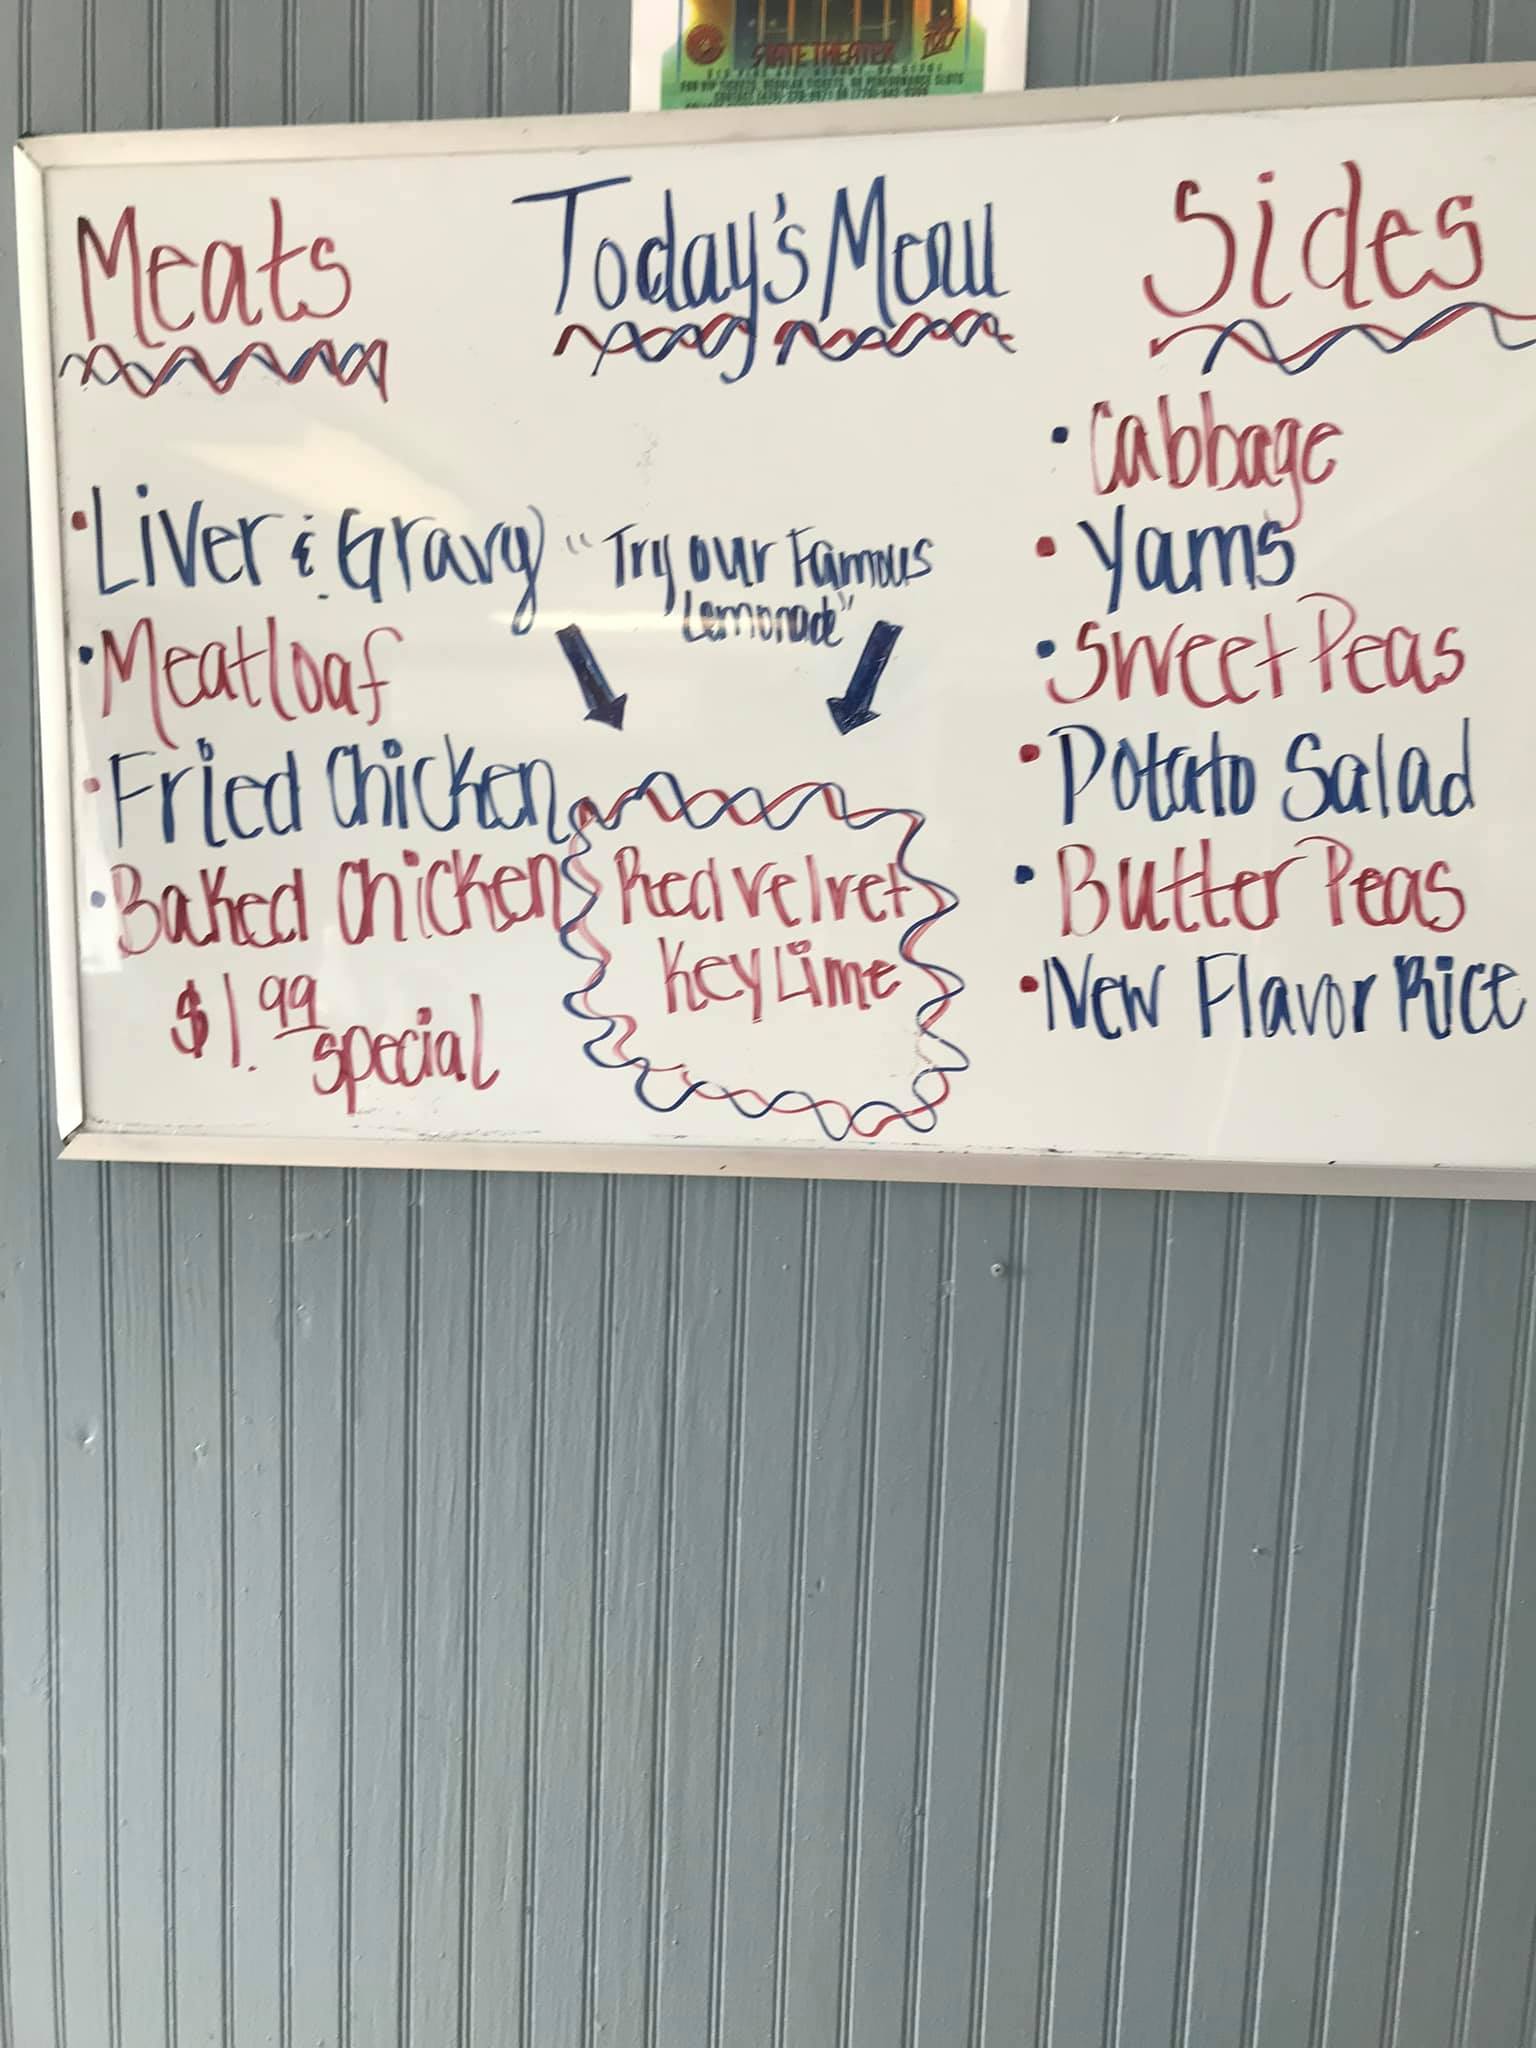 STATE THEATER
Meats
Today's Menu
Sides
• Liver & Gravy
• Meatloaf
• Fried Chicken
• Baked Chicken
$1.99
special
"Try our Famous
Lemonade"
Red velvet
Key Lime
• Cabbage
• Yams
• Sweet Peas
• Potato Salad
• Butter Peas
• New Flavor Rice